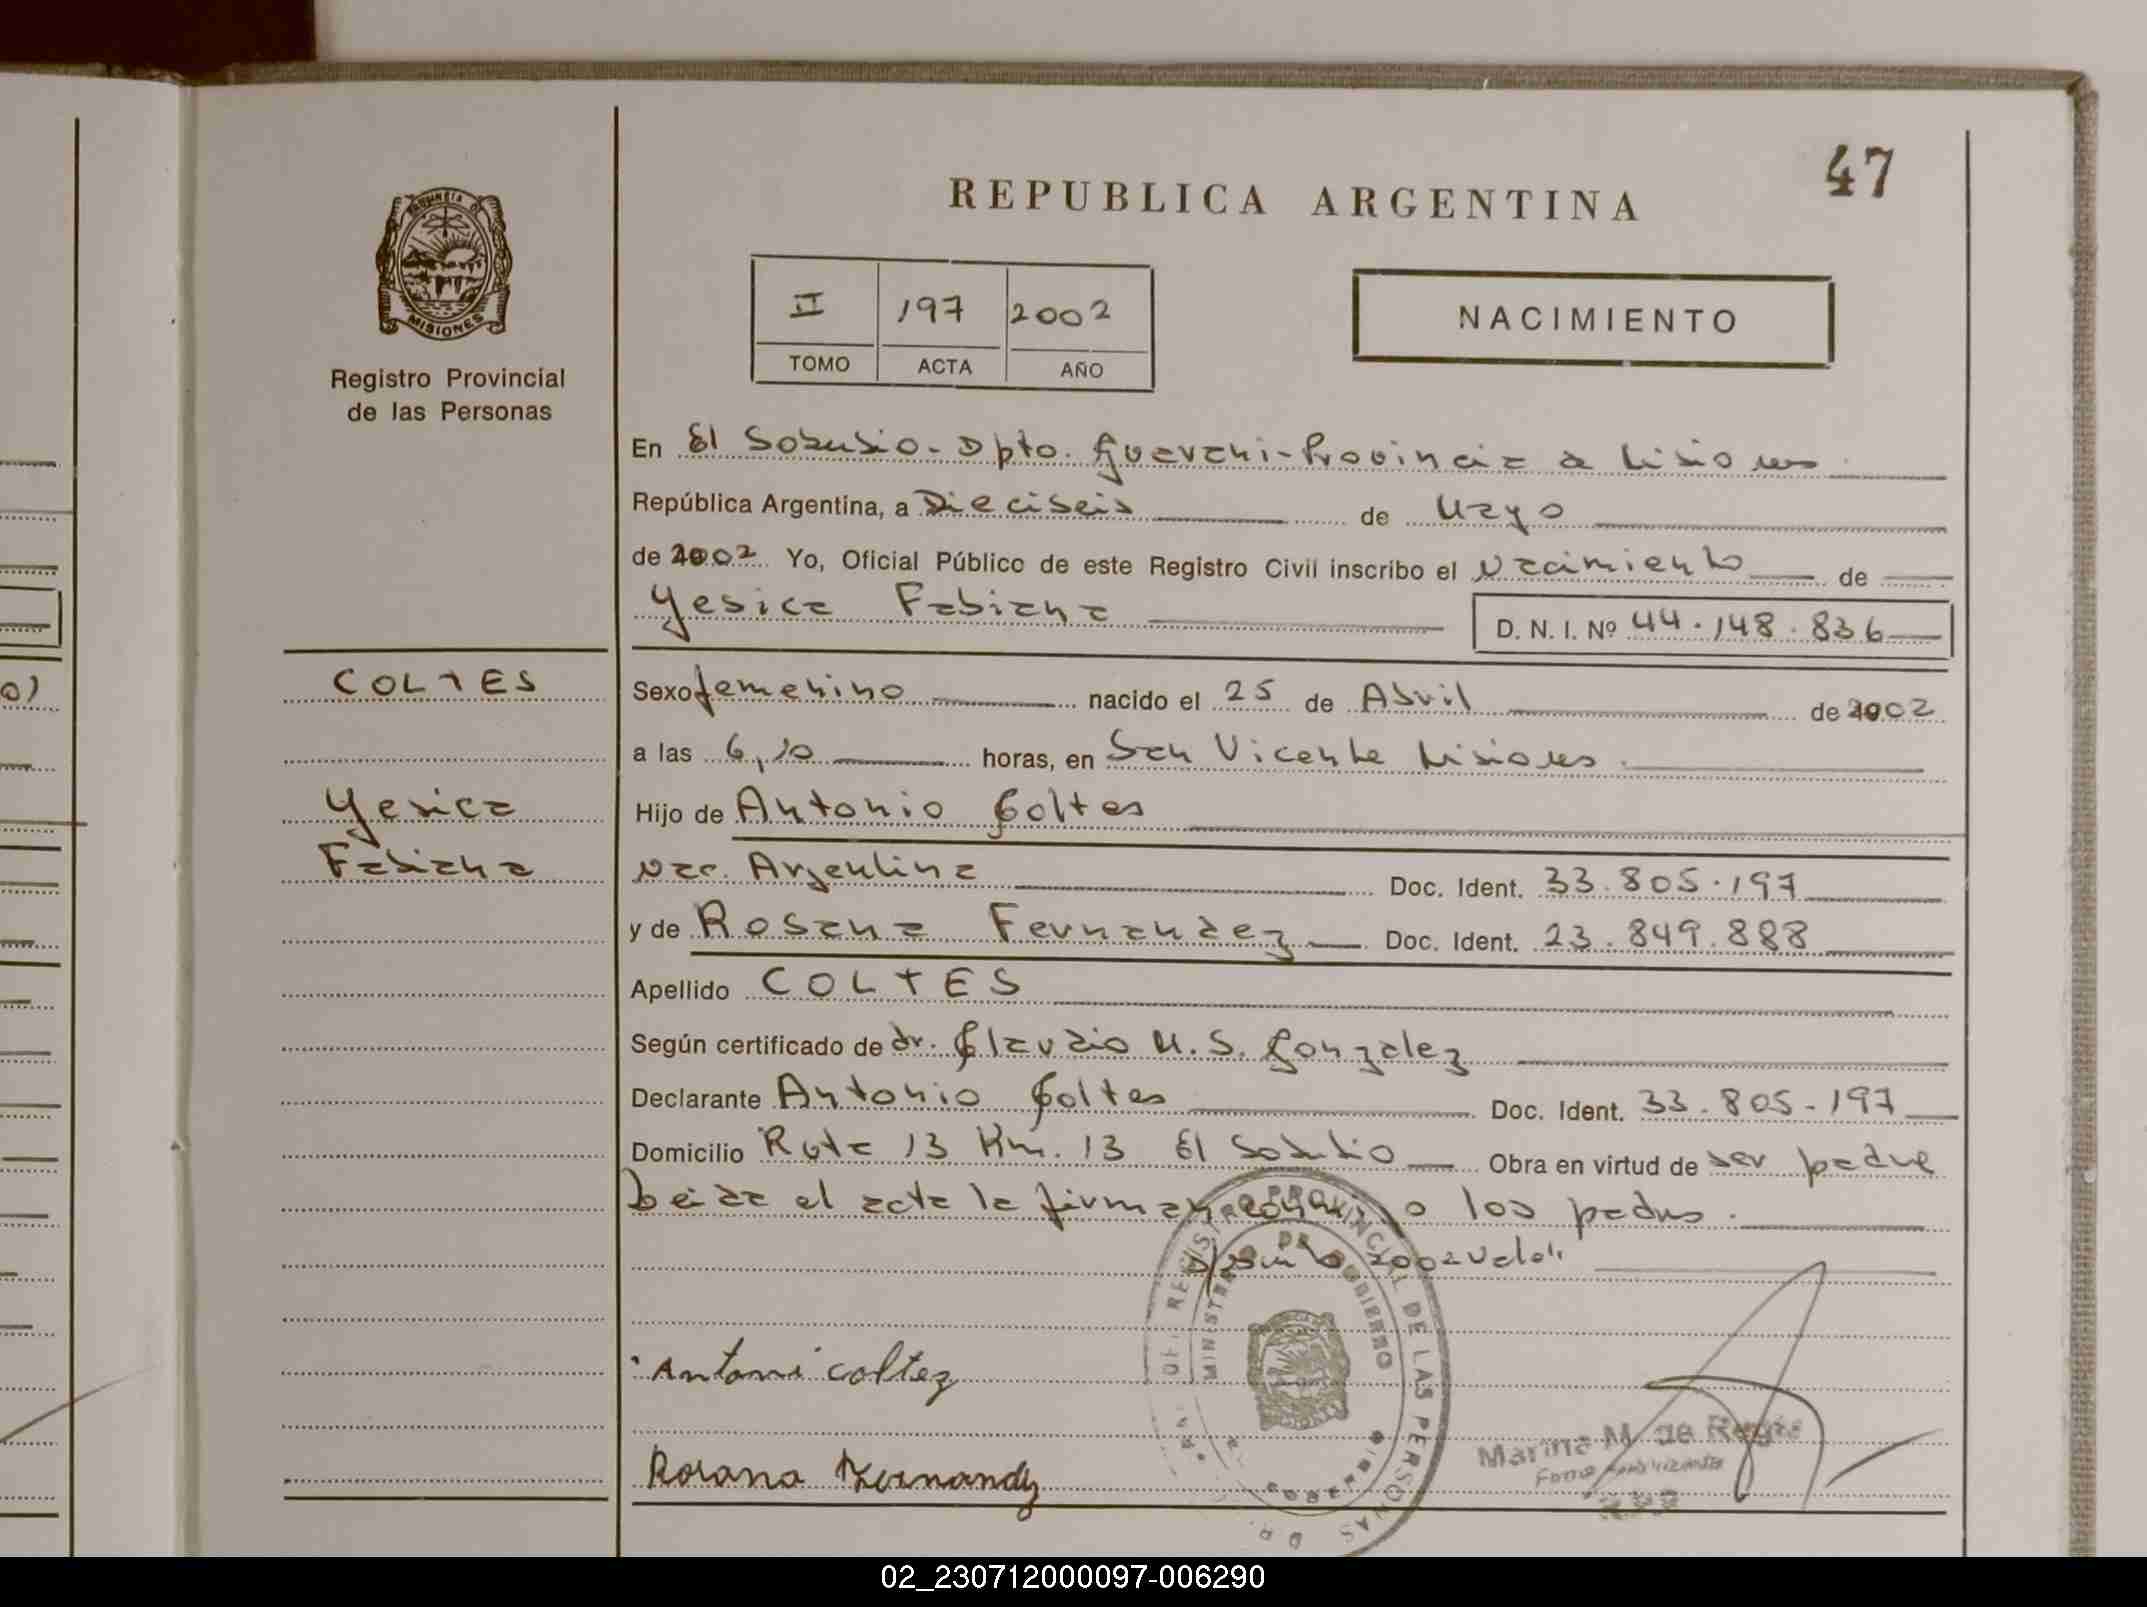 47
REPUBLICA ARGENTINA
PROVINCIA DE
MISIONES
Registro Provincial
de las Personas
II 197 2002
TOMO ACTA AÑO
NACIMIENTO
En El Soberbio - Dpto. Guarani - Provincia de Misiones
República Argentina, a Dieciseis de Mayo
de 2002 Yo, Oficial Público de este Registro Civil inscribo el Nacimiento de
Yesica Fabiana D. N. I. Nº 44.148.836
COLTES
Yesica
Fabiana
Sexo femenino nacido el 25 de Abril de 2002
a las 6,10 horas, en San Vicente Misiones
Hijo de Antonio Coltes
Nac. Argentina Doc. Ident. 33.805.197
y de Rosana Fernandez Doc. Ident. 23.849.888
Apellido COLTES
Según certificado de dr. Claudio M. S. Gonzalez
Declarante Antonio Coltes Doc. Ident. 33.805.197
Domicilio Ruta 13 Km. 13 El Soberbio Obra en virtud de ser padre
Leida el acta la firman los padres.
2002 Vale"
Antoni coltez
Rosana Fernandez
REGISTRO PROVINCIAL DE LAS PERSONAS
MINISTERIO DE GOBIERNO
MISIONES
Marina M. de